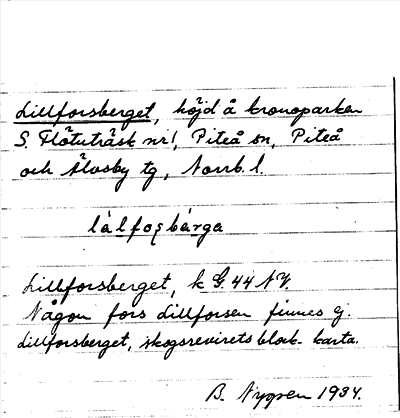 Lillforsberget, höjd å kronoparken
S. Flötuträsk nr 1, Piteå sn, Piteå
och Älvsby tg, Norrb. l.
lålfosbárga
Lillforsberget, k G. 44 NV.
Någon fors Lillforsen finnes ej.
Lillforsberget, skogsrevirets block-karta.
B. Nygren 1934.